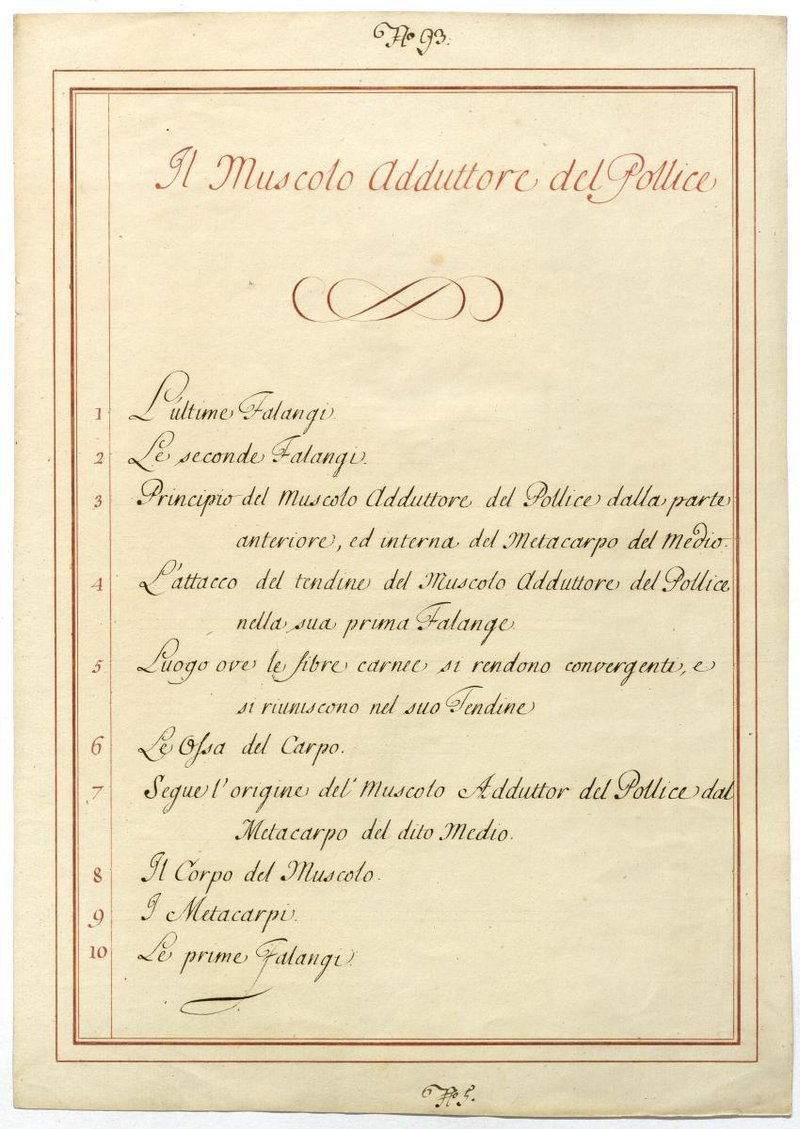 No 93.
Il Muscolo Adduttore del Pollice
1 L'ultime Falangi
2 Le seconde Falangi.
3 Principio del Muscolo Adduttore del Pollice dalla parte
anteriore, ed interna del Metacarpo del Medio.
4 L'attacco del tendine del Muscolo Adduttore del Pollice
nella sua prima Falange
5 Luogo ove le fibre carnee si rendono convergenti, e
si riuniscono nel suo Tendine
6 Le Oſsa del Carpo.
7 Segue l'origine del' Muscolo Adduttor del Pollice dal
Metacarpo del dito Medio.
8 Il Corpo del Muscolo.
9 I Metacarpi.
10 Le prime Falangi
No 5.